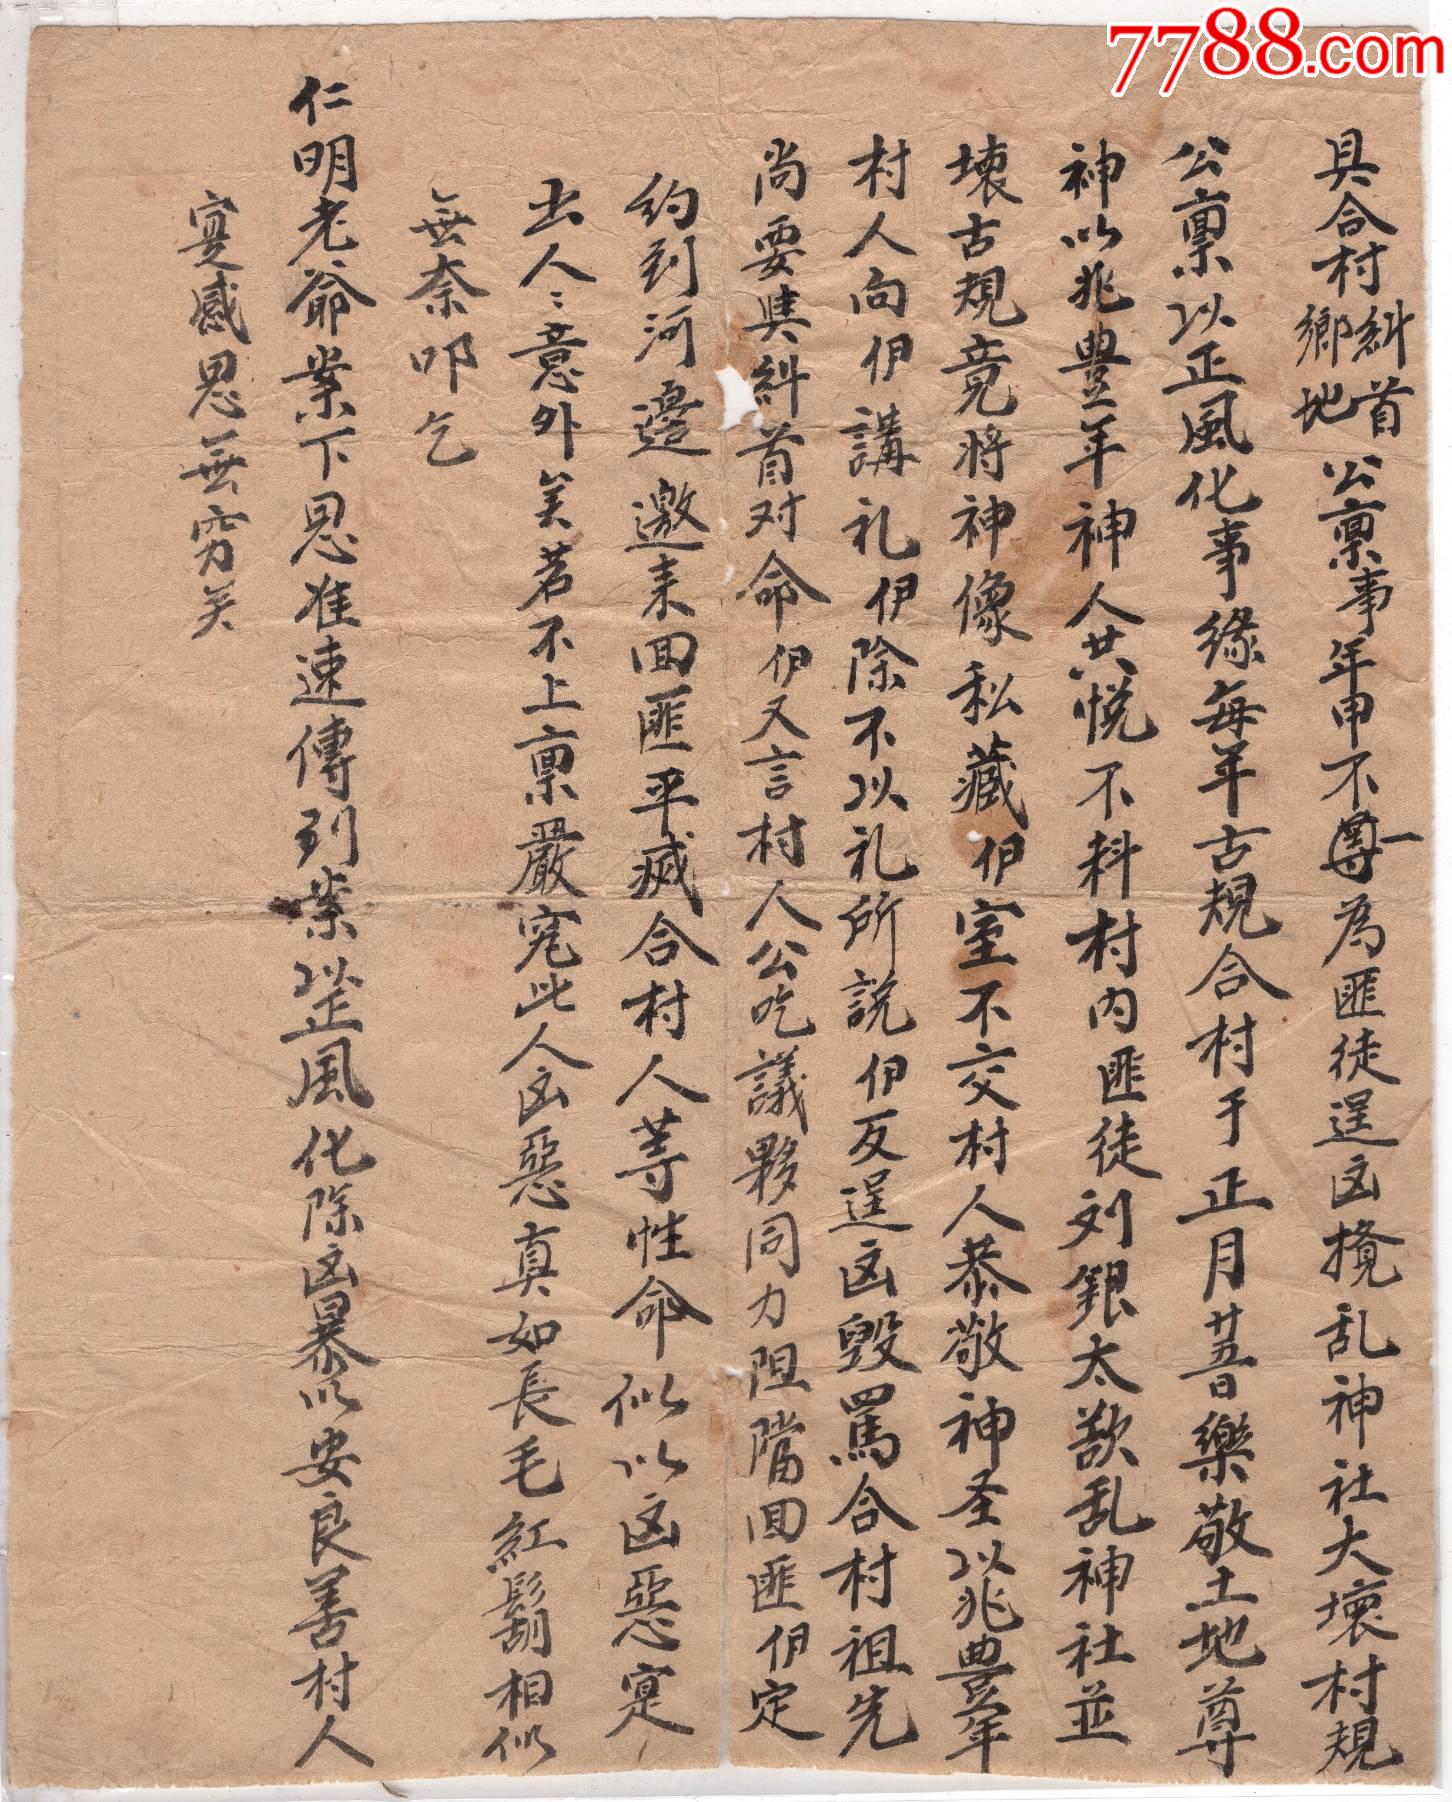 7788.com
具合村糾首鄉地公禀事年申不一尊為匪徒逞凶攪乱神社大壞村規
公禀以正風化事缘每年古規合村于正月廿五日樂敬土地尊
神以兆豊年神人共悦不料村内匪徒刘銀太歃乱神社並
壊古規竟将神像私藏伊室不交村人恭敬神圣以兆豊年
村人向伊講礼伊除不以礼所説伊反逞凶毀罵合村祖先
尚要與糾首对命伊又言村人公吃議夥同力阻擋回匪伊定
約到河邊邀来回匪平滅合村人等性命似以凶惡寔
出人〻意外矣若不上禀嚴究此人凶惡真如長毛紅鬍相似
無奈叩乞
仁明老爺案下恩准速傳到案以正風化除凶暴以安良善村人
寔感恩無穷矣